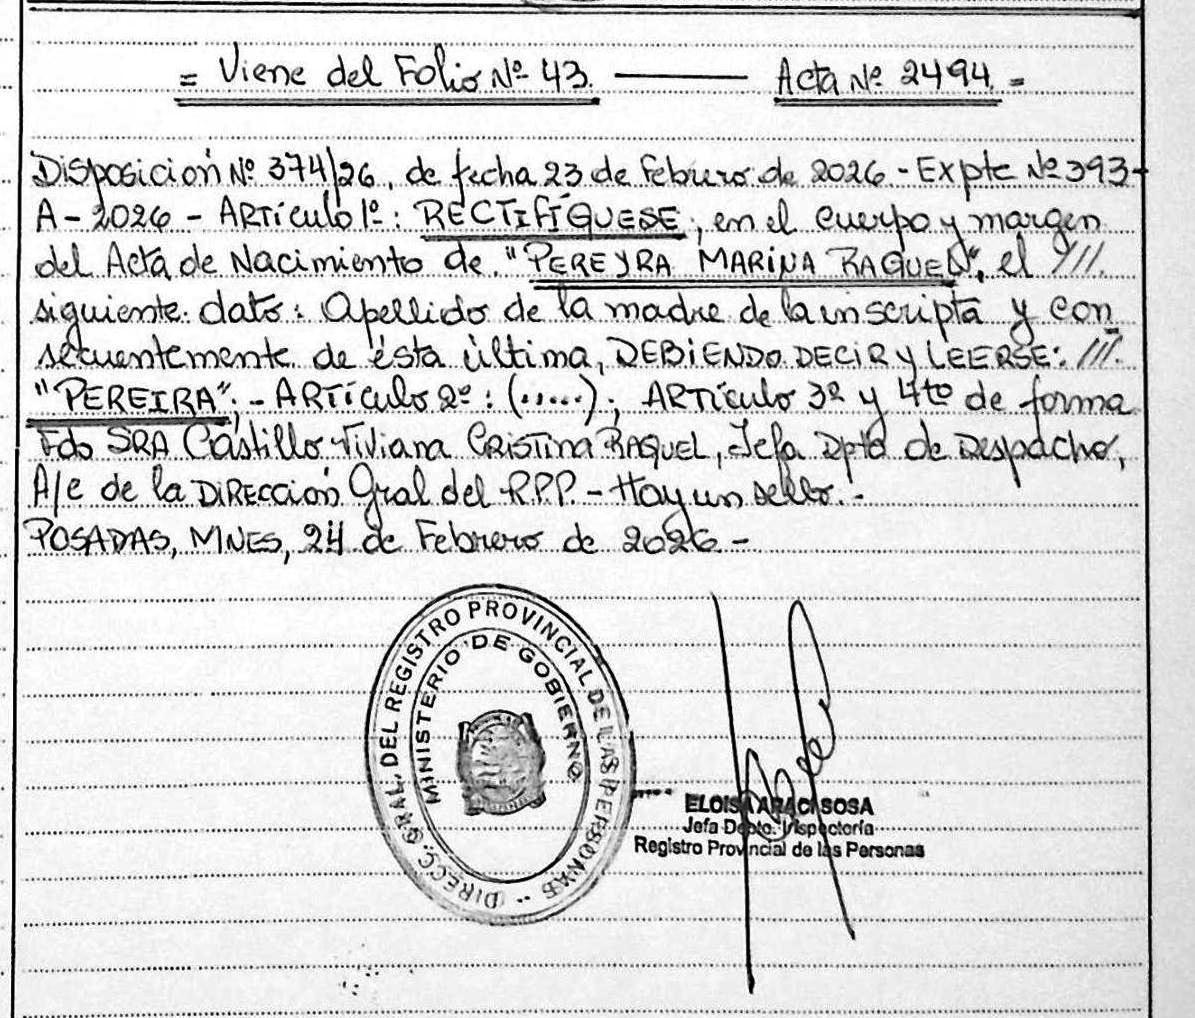 = Viene del Folio Nº 43. ——— Acta Nº 2494. =
Disposición Nº 374/26, de fecha 23 de Febrero de 2026 - Expte Nº 393-
A - 2026 - ARTículo 1º: RECTIFÍQUESE, en el cuerpo y margen
del Acta de Nacimiento de "PEREYRA MARINA RAQUEL", el ///.
siguiente dato: Apellido de la madre de la inscripta y con_
secuentemente de ésta última, DEBIENDO DECIR y LEERSE: ///.
"PEREIRA"; - ARTículo 2º: (.....); ARTículo 3º y 4to de forma
Fdo SRA Castillo Viviana CRISTINA RAQUEL, Jefa Dpto de Despacho,
A/e de la DIRECCIÓN Gral del R.P.P. - Hay un sello. -
POSADAS, MNES, 24 de Febrero de 2026 -
DIRECC. GRAL. DEL REGISTRO PROVINCIAL DE LAS PERSONAS
MINISTERIO DE GOBIERNO
ELOISA ARACI SOSA
Jefa Depto. Inspectoría
Registro Provincial de las Personas